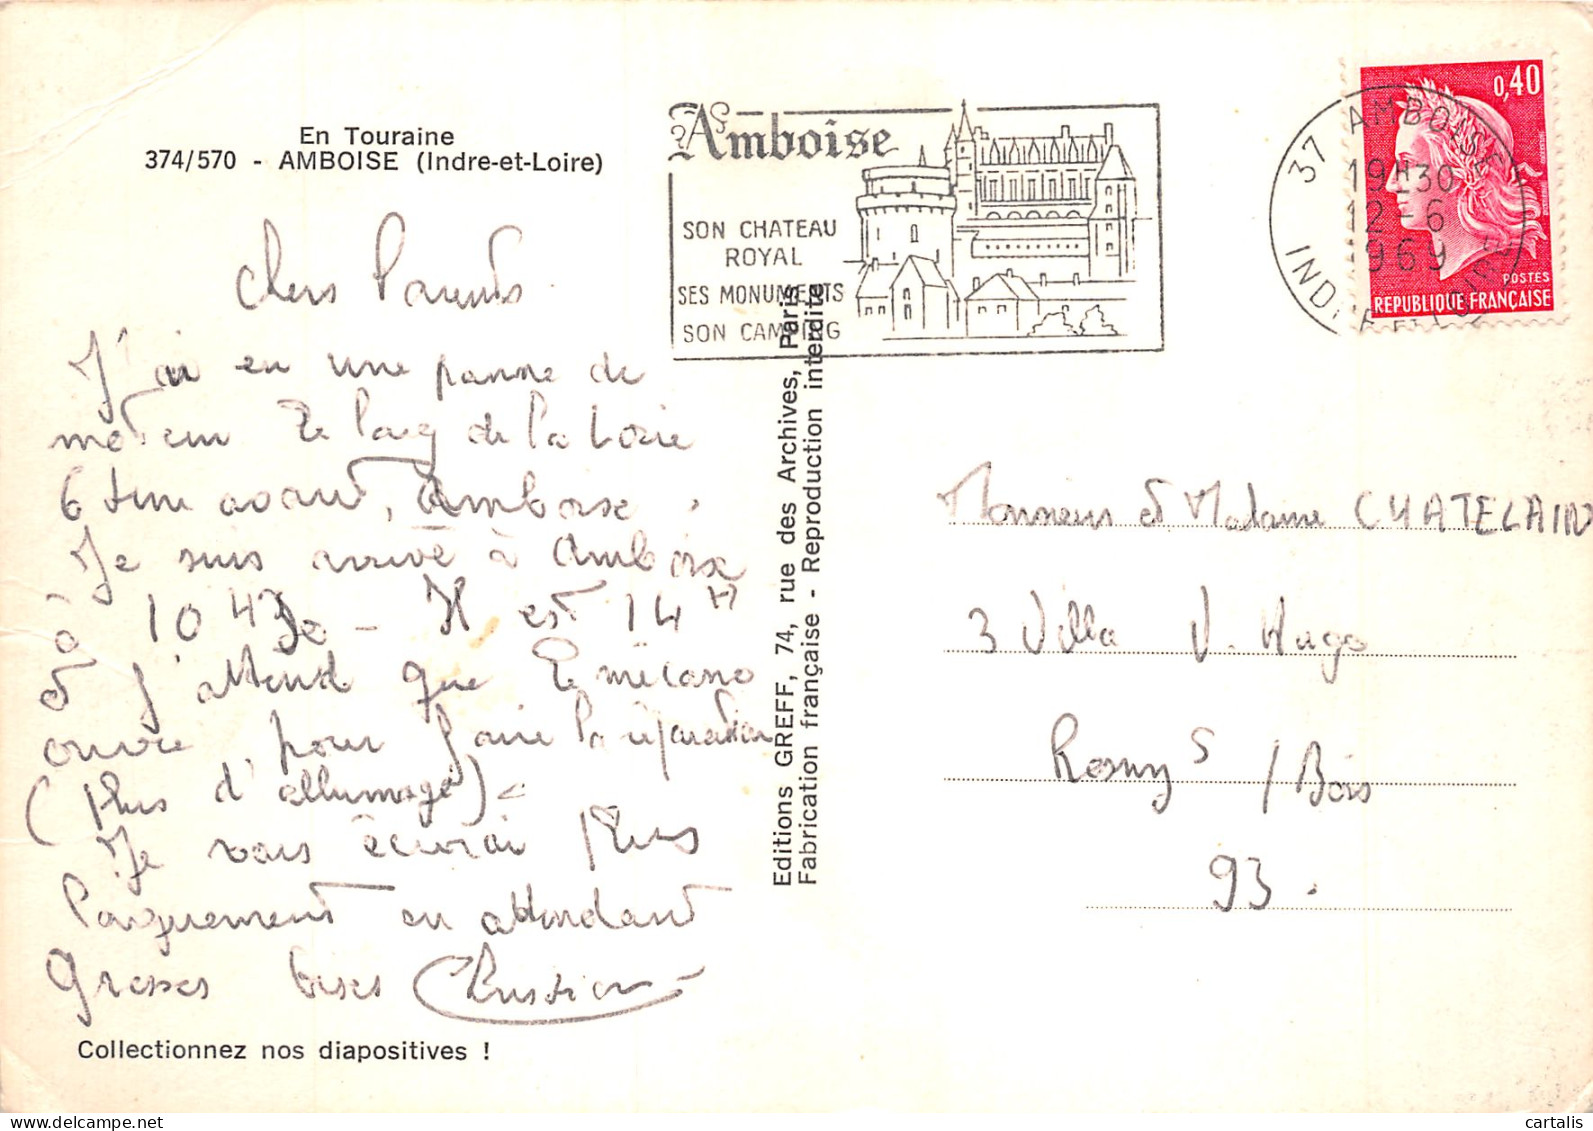 En Touraine
374/570 - AMBOISE (Indre-et-Loire)
Chers Parents
J'ai eu une panne de
moteur le long de la Loire
6 km avant, Amboise.
Je suis arrivé à Amboise
à 10H30 - Il est 14H
et j'attend que le mécano
ouvre, pour faire la réparation
(plus d'allumage).
Je vous écrirai plus
longuement en attendant
grosses bises Christian
Collectionnez nos diapositives !
Editions GREFF, 74, rue des Archives, Paris
Fabrication française - Reproduction interdite
Amboise
SON CHATEAU
ROYAL
SES MONUMENTS
SON CAMPING
37 AMBOISE
19H30
12-6
1969
INDRE ET LOIRE
0,40
POSTES
REPUBLIQUE FRANÇAISE
Monsieur et Madame CHATELAIN
3 Villa V. Hugo
Rosny s/Bois
93.
cartalis